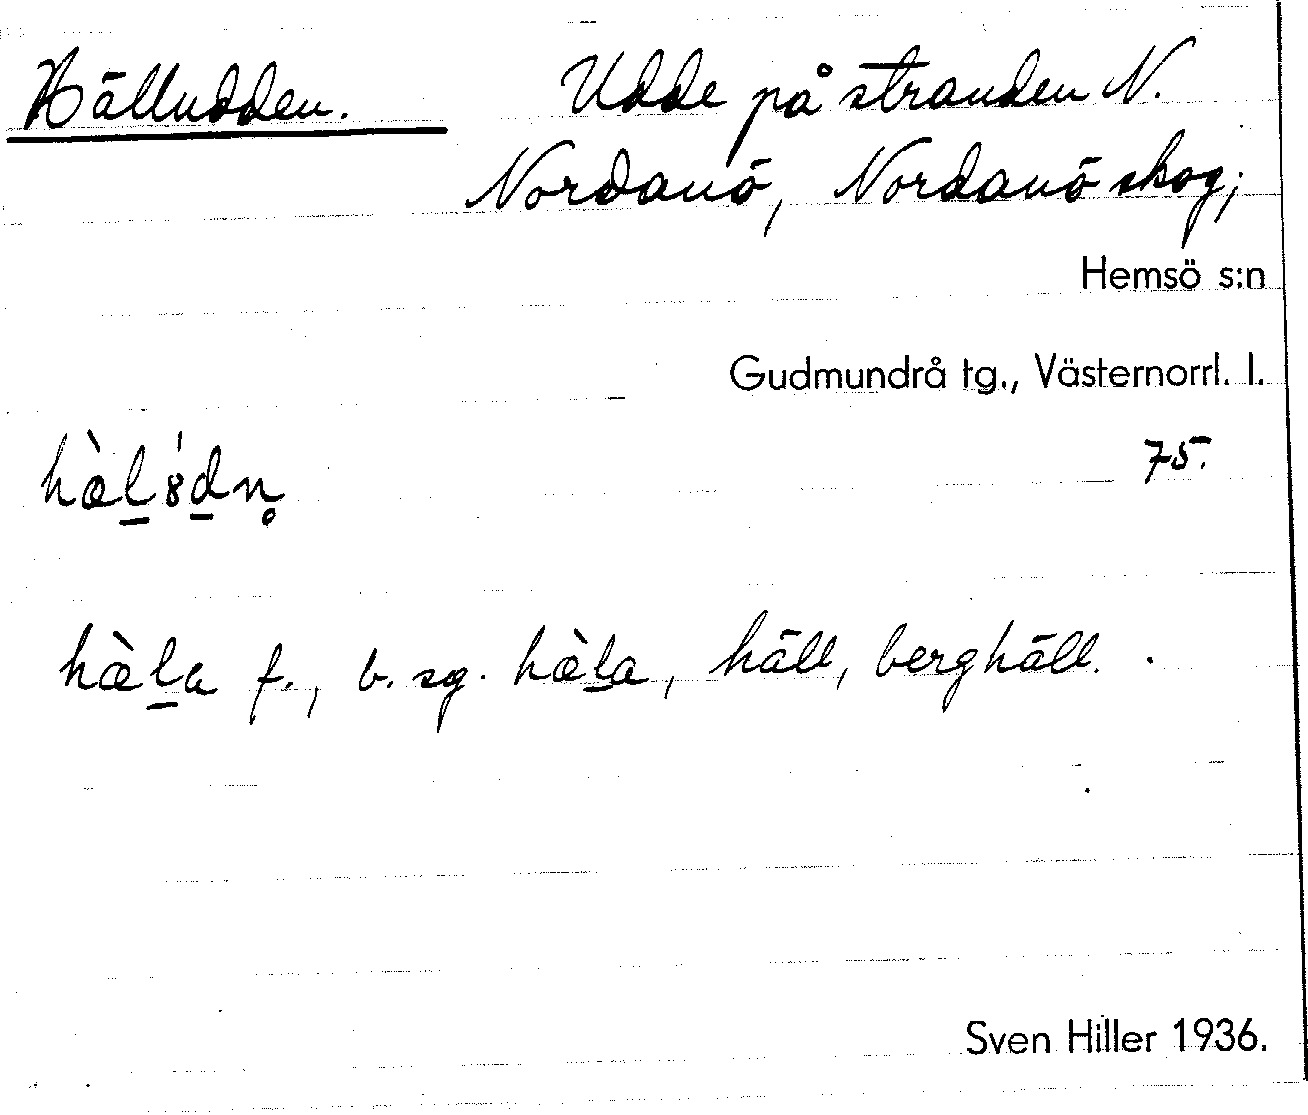 Hälludden. Udde på stranden N.
Nordanö, Nordanö skog;
Hemsö s:n
Gudmundrå tg., Västernorrl. l.
75.
hæ̀l̲8́d̲n̥
hæ̀l̲a f., b. sg. hæ̀l̲a, häll, berghäll.
Sven Hiller 1936.